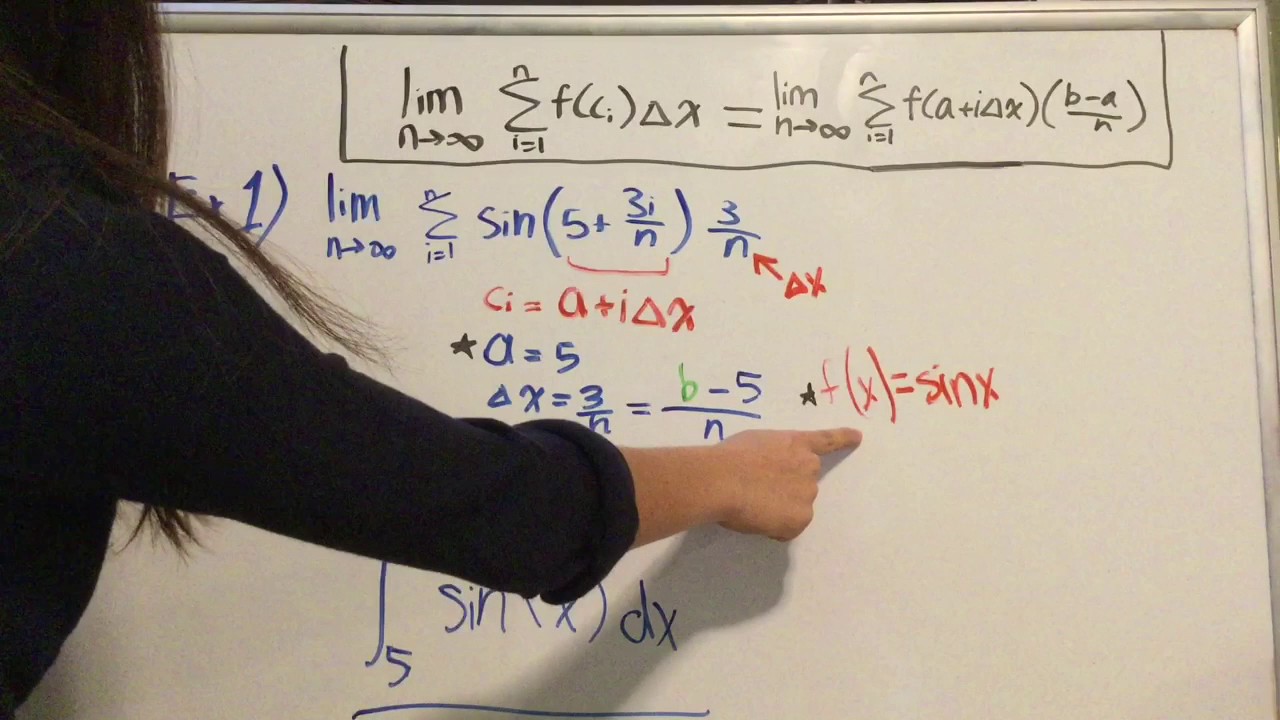 lim n→∞ n Σ i=1 f(ci)Δx = lim n→∞ n Σ i=1 f(a+iΔx)(b-a/n)
1) lim n→∞ n Σ i=1 sin(5+3i/n) 3/n
Δx
ci = a+iΔx
★ a = 5
Δx = 3/n = b-5/n ★ f(x)=sinx
∫5 sin(x) dx